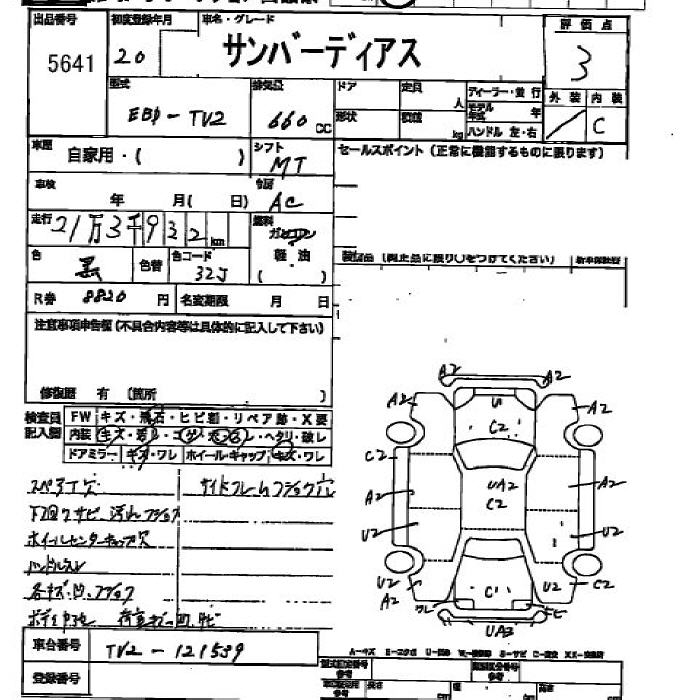 出品番号 初度登録年月 車名・グレード 評価点
5641 20 サンバーディアス 3
型式 排気量 ドア 定員 人 ディーラー・並行 外装 内装
EBD-TV2 660cc 形状 積載 kg モデル年式 年 C
ハンドル 左・右
車歴 自家用・( ) シフト MT セールスポイント (正常に機能するものに限ります)
車検 年 月( 日) 冷房 AC
走行 21万3千932km 燃料 ガソリン
軽油
( )
色 黒 色替 色コード 32J
装備品 (純正品に限り○をつけてください) 新車保証書
R券 8820円 名変期限 月 日
注意事項申告欄(不具合内容等は具体的に記入して下さい)
修復歴 有 (箇所 )
検査員記入欄
FW キズ・飛石・ヒビ割・リペア跡・X要
内装 キズ・汚れ・コゲ・穴・ヘタリ・破レ
ドアミラー キズ・ワレ ホイール・キャップ キズ・ワレ
スペアTナシ サイドフレームフショク穴
下回りサビ 汚れ フショク
ホイールセンターキャップ欠
ハンドルスレ
各キズ・凹・フショク
車台番号 TV2-121539
登録番号
A2 A2
A2 A2
U C2
C2
A2 UA2 A2
C2
U2 U2
U2 C U2 C2
A2 ワレ サビ
UA2
型式指定番号 参考 類別区分番号 参考
長さ cm 幅 cm 高さ cm